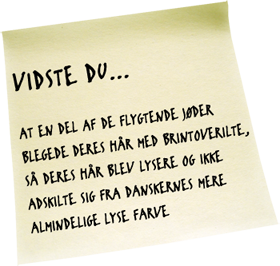 VIDSTE DU...
AT EN DEL AF DE FLYGTENDE JØDER
BLEGEDE DERES HÅR MED BRINTOVERILTE,
SÅ DERES HÅR BLEV LYSERE OG IKKE
ADSKILTE SIG FRA DANSKERNES MERE
ALMINDELIGE LYSE FARVE